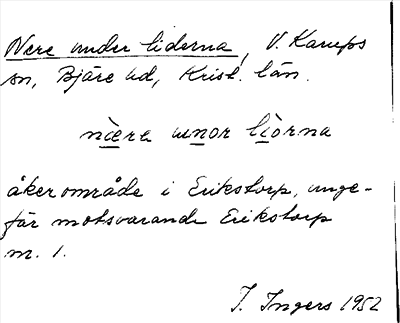 Nere under liderna, V. Karups
sn, Bjäre hd, Krist. län.
nere unor liorna
åkerområde i Erikstorp, unge-
fär motsvarande Erikstorp
m. 1.
I. Ingers 1952